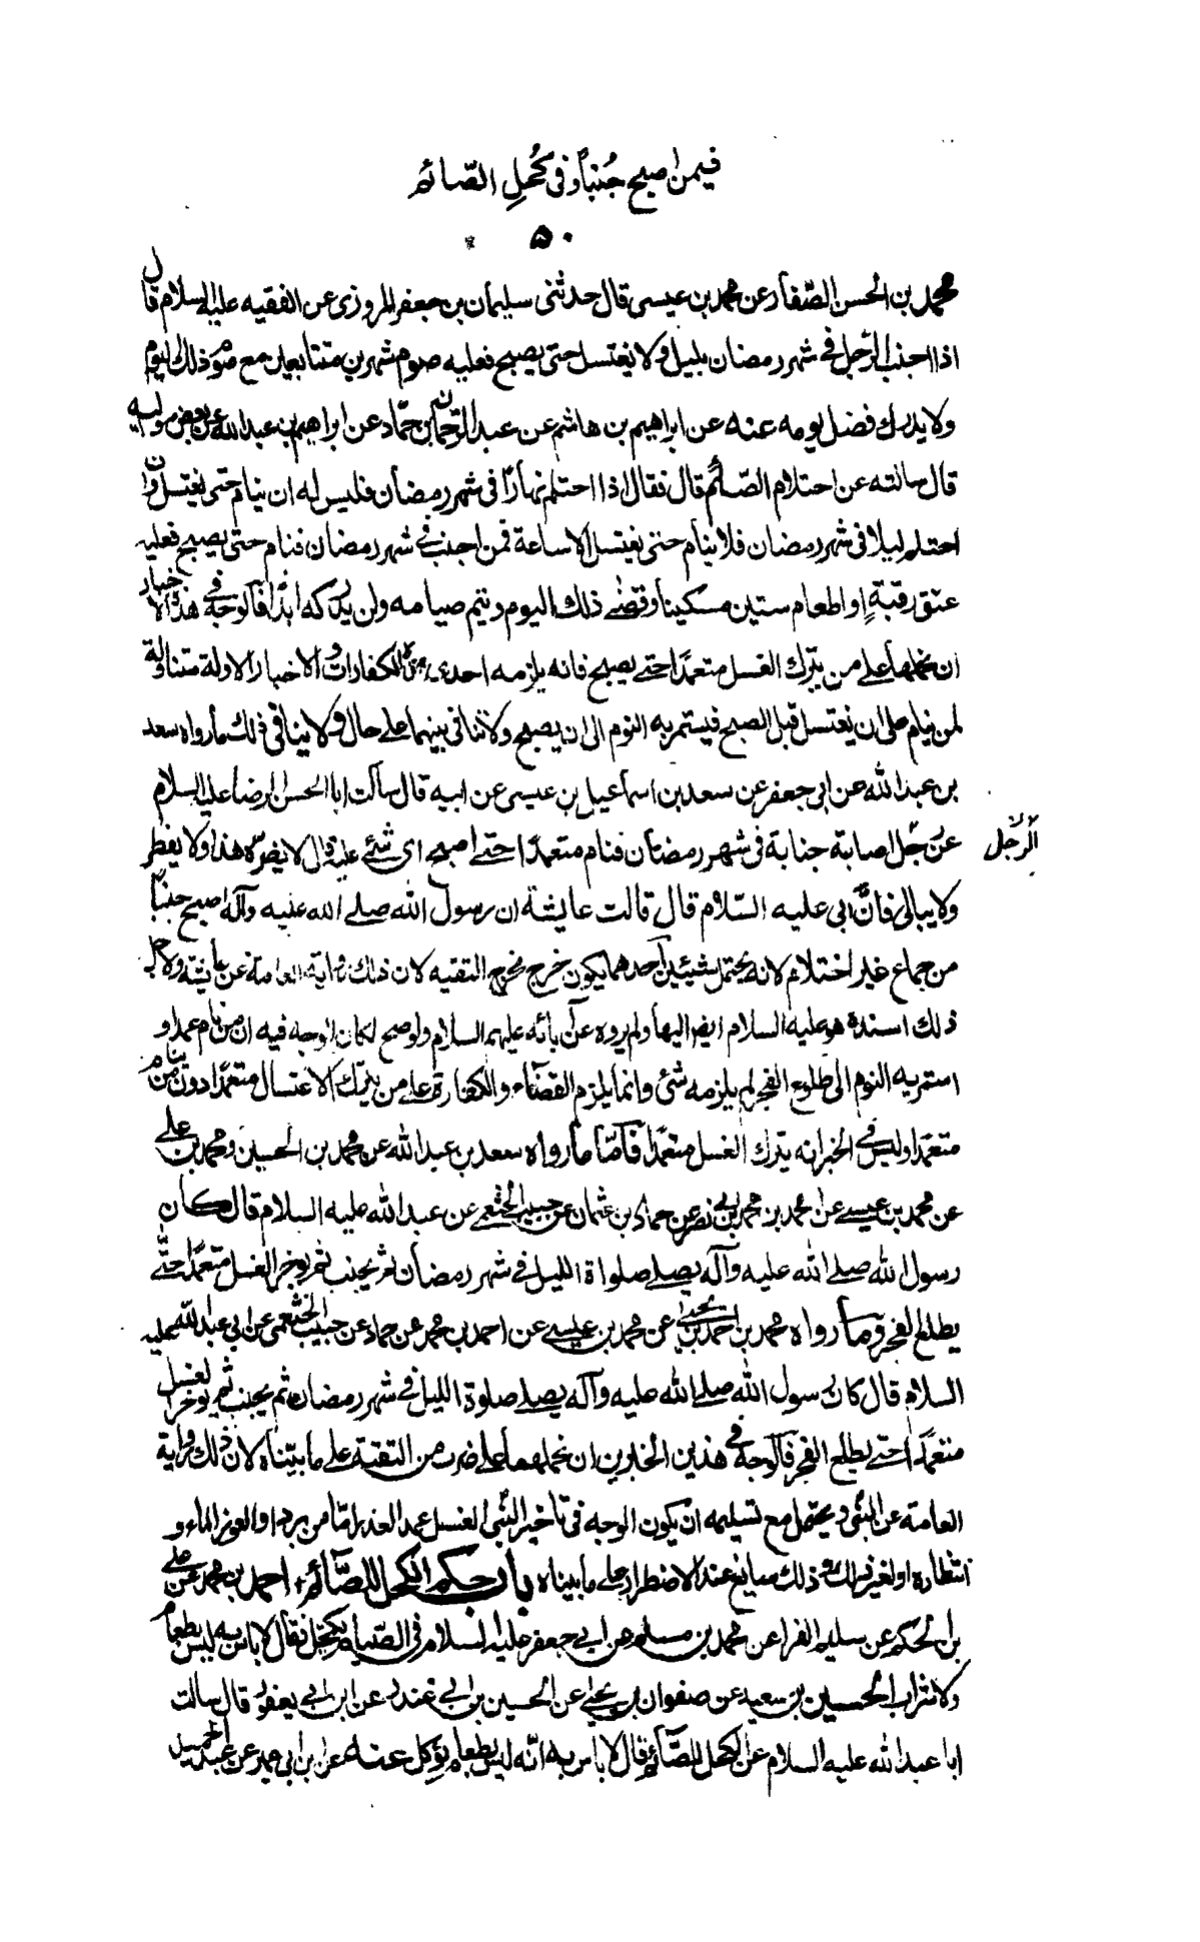 فيمن اصبح جُنباً وفى كُحلِ الصّائم
۵۰
محمد بن الحسن الصّفار عن محمد بن عيسى قال حدثنى سليمان بن جعفر المروزى عن الفقيه عليه السلام قال
اذا اجنب الرّجل فى شهر رمضان بليل ولا يغتسل حتى يصبح فعليه صوم شهرين متتابعين مع صوم ذلك اليوم
ولا يدرك فضل يومه عنه عن ابراهيم بن هاشم عن عبد الرّحمان بن حمّاد عن ابراهيم بن عبد الله عن بعض مواليه
قال سالته عن احتلام الصّائم قال فقال اذا احتلم نهاراً فى شهر رمضان فليس له ان ينام حتى يغتسل وان
احتلم ليلا فى شهر رمضان فلا ينام حتى يغتسل الا ساعة فمن اجنب فى شهر رمضان فنام حتى يصبح فعليه
عتق رقبةٍ او اطعام ستين مسكينا وقضى ذلك اليوم ويتم صيامه ولن يدركه ابداً فالوجه فى هذه الاخبار
ان نحملها على من يترك الغسل متعمداً حتى يصبح فانه يلزمه احدى هذه الكفارات والاخبار الاولة متناولة
لمن ينام على ان يغتسل قبل الصبح فيستمر به النوم الى ان يصبح ولا تنافى بينهما على حال ولا ينافى ذلك ما رواه سعد
بن عبد الله عن ابى جعفر عن سعد بن اسماعيل بن عيسى عن ابيه قال سالت ابا الحسن الرضا عليه السلام
عن رجُل اصابة جنابة فى شهر رمضان فنام متعمداً حتى اصبح اى شئ عليه قال لا يضرّه هذا ولا يفطر
الرجل
ولا يبالى فانّ ابى عليه السّلام قال قالت عايشة ان رسول الله صلى الله عليه وآله اصبح جنباً
من جماع غير احتلام لانه يحتمل شيئين احدهما يكون خرج مخرج التقيه لان ذلك رواية العامة عن عايشة ولاجل
ذلك اسنده هو عليه السلام ايضا اليها ولم يروه عن آبائه عليهم السلام ولو صح لكان الوجه فيه ان من نام عمدا و
استمر به النوم الى طلوع الفجر لم يلزمه شئ وانما يلزم القضآء والكفارة على من يترك الاغتسال متعمداً دون من ينام
متعمدا وليس فى الخبر انه يترك الغسل متعمداً فاَمّا ما رواه سعد بن عبد الله عن محمد بن الحسين ومحمد بن على
عن محمد بن عيسى عن احمد بن محمد بن ابى نصر عن حماد بن عثمان عن حبيب الخثعمى عن عبد الله عليه السلام قال كان
رسول الله صلى الله عليه وآله يصلى صلواة الليل فى شهر رمضان ثم يجنب ثم يوخر الغسل متعمداً حتّى
يطلع الفجر وما رواه محمد بن احمد بن يحيى عن محمد بن عيسى عن احمد بن محمد عن حماد عن حبيب الخثعمى عن ابى عبد الله عليه
السلام قال كان رسول الله صلى الله عليه وآله يصلى صلوة الليل فى شهر رمضان ثم يجنب ثم يوخر الغسل
متعمداً حتى يطلع الفجر فالوجه فى هذين الخبرين ان نحملهما على ضرب من التقية على ما بيّناه لان ذلك رواية
العامة عن النبى ويحتمل مع تسليمه ان يكون الوجه فى تاخير النبى الغسل عمداً لعذر امّا من برد او العوز الماء و
انتظاره او لغير ذلك وذلك سايغ عند الاضطرار على ما بيناه باب حكم الكحل للصّآئم احمد بن محمد عن على
بن الحكم عن سليم الفرا عن محمد بن مسلم عن ابى جعفر عليه السلام فى الصّيام يكتحل فقال لا باس به ليس بطعام
ولا شراب الحسين بن سعيد عن صفوان بن يحيى عن الحسين بن ابى غندر عن ابن ابى يعفور قال سالت
ابا عبد الله عليه السلام عن الكحل للصّآئم قال لا باس به انّه ليس بطعام يؤكل عنه عن ابن ابى عمير عن عبد الحميد